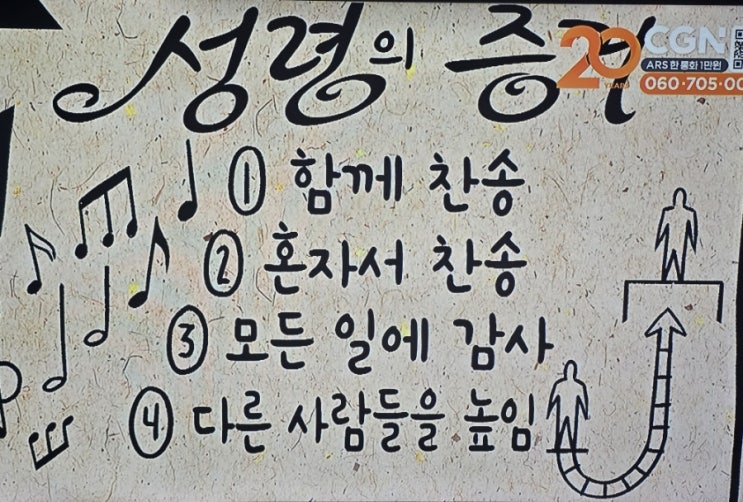 성령의 증거
20 YEARS CGN
ARS 한 통화 1만원
060·705·00
① 함께 찬송
② 혼자서 찬송
③ 모든 일에 감사
④ 다른 사람들을 높임